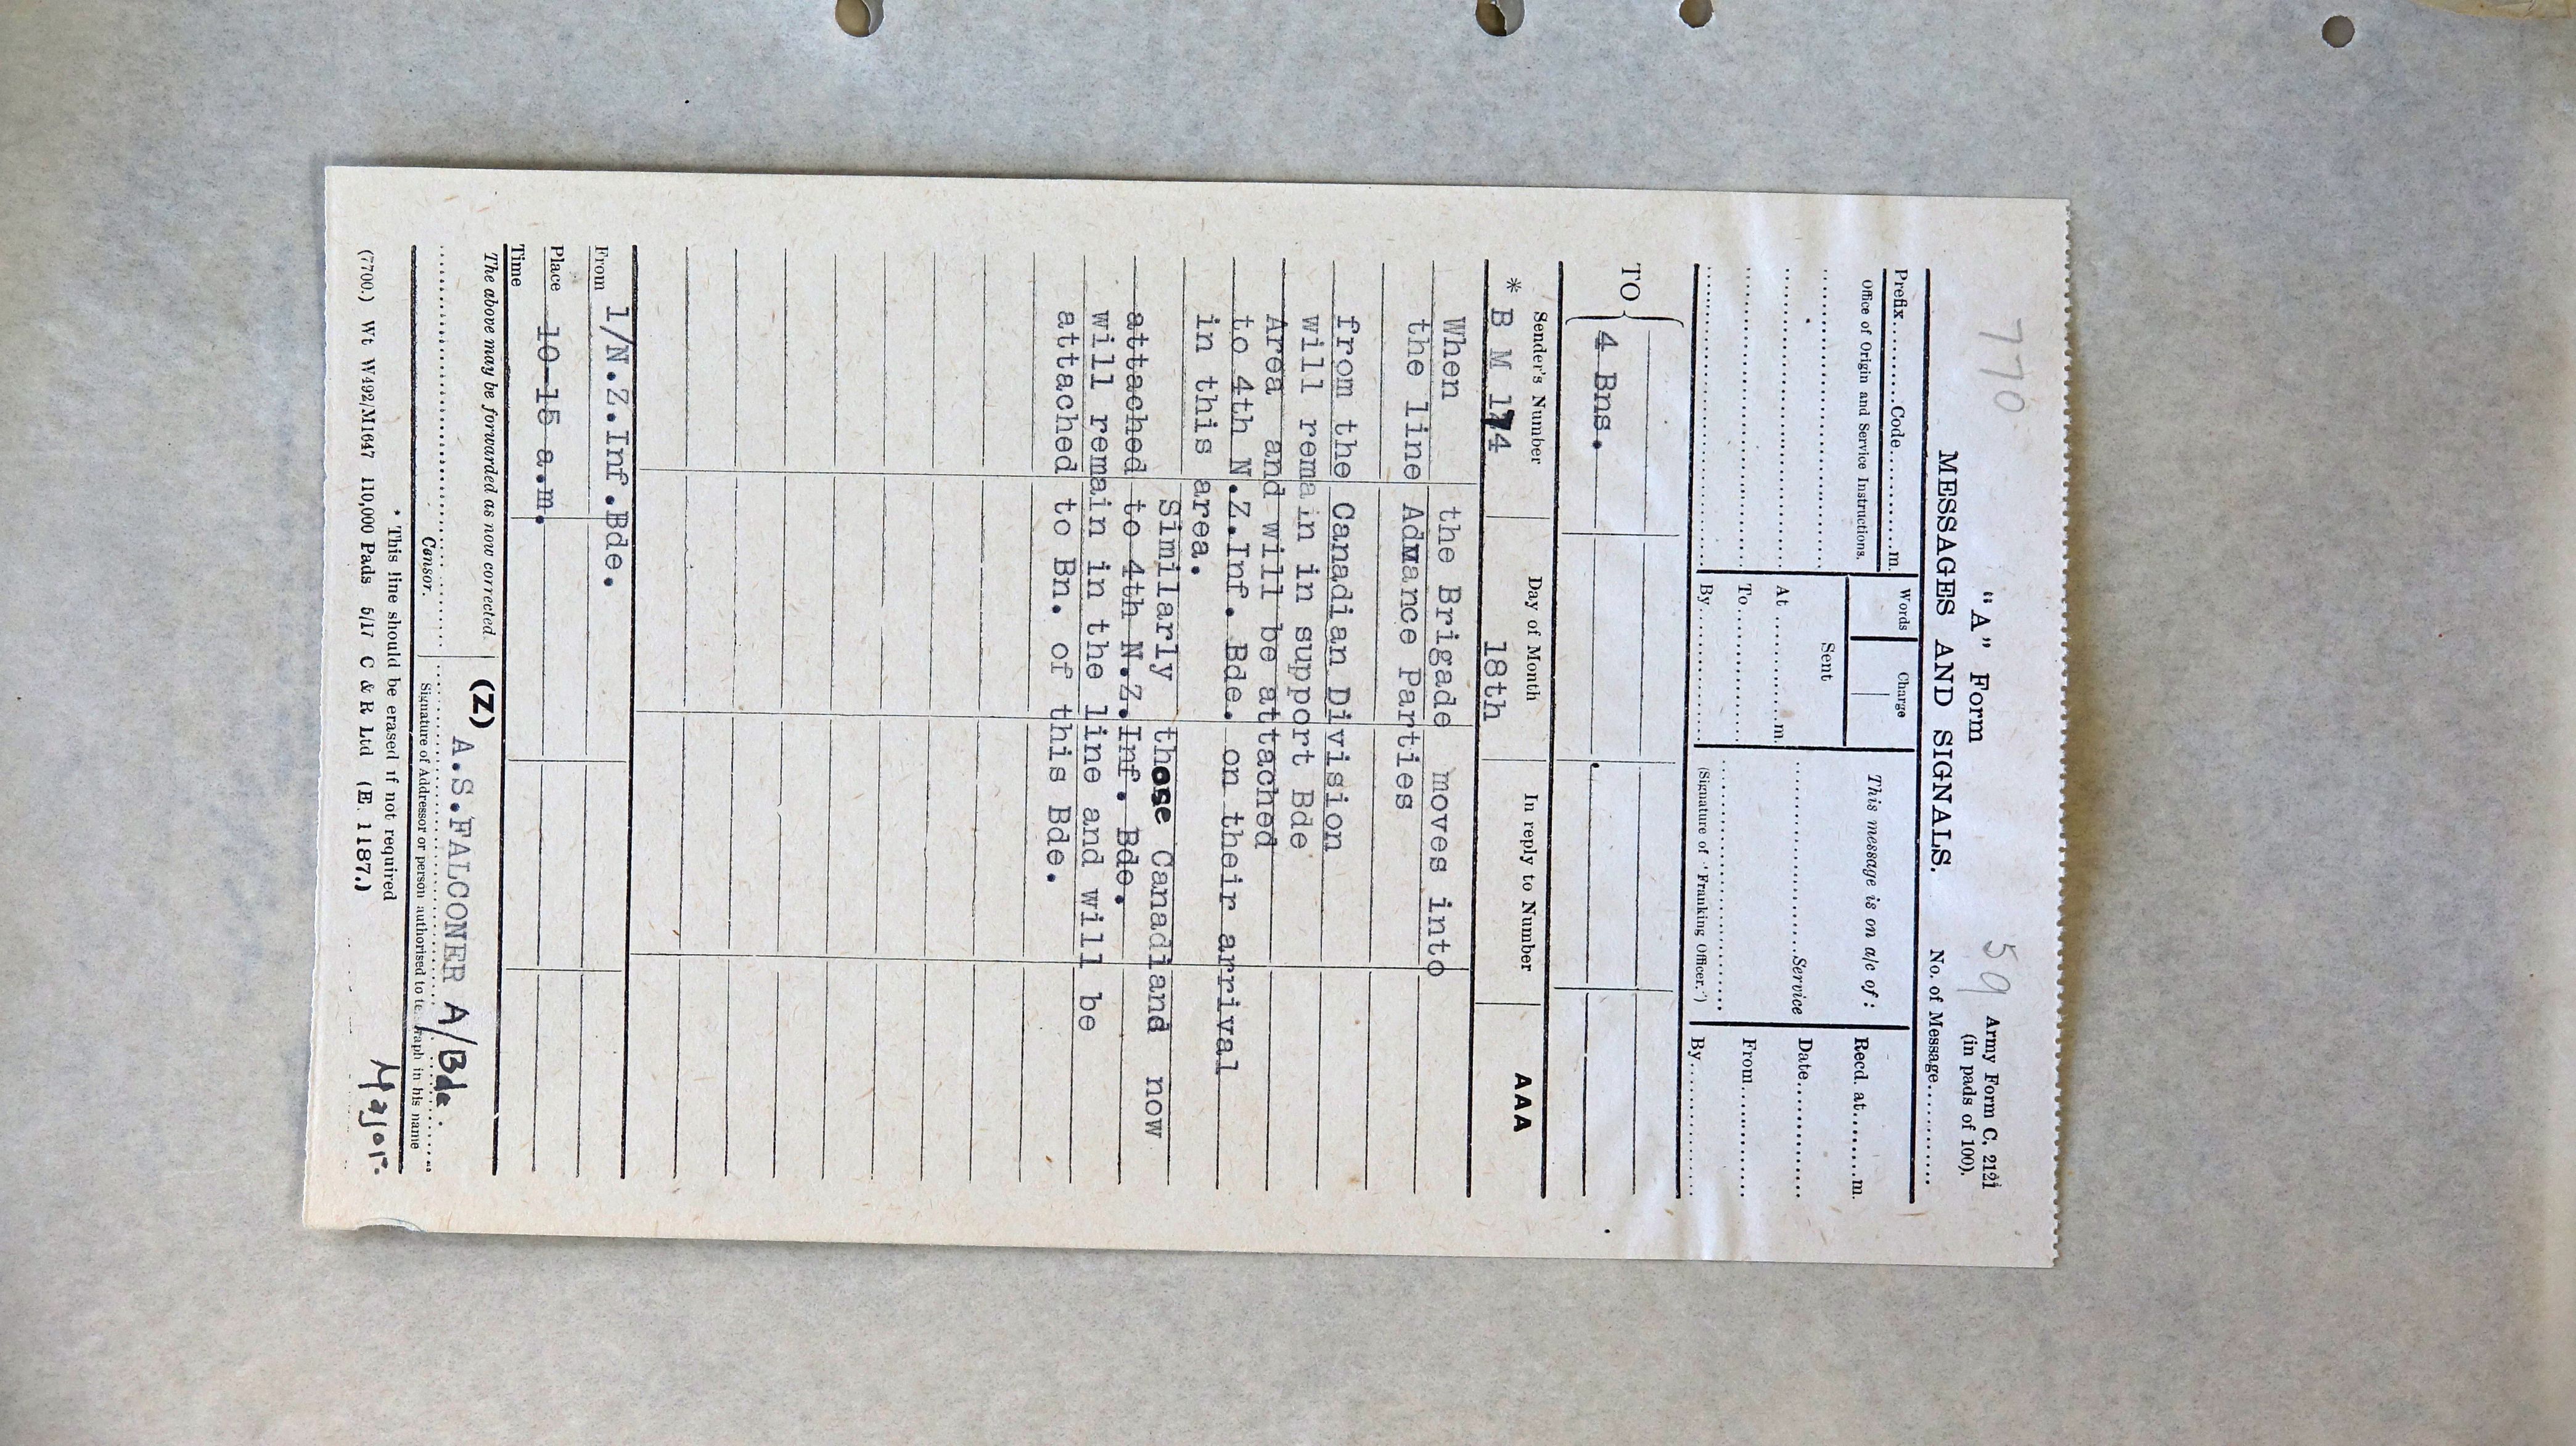 770
59
"A" Form
Army Form C. 2121
(in pads of 100).
MESSAGES AND SIGNALS.
No. of Message..........
Prefix.........Code.........m.
Office of Origin and Service Instructions.
Words
Charge
Sent
At ..........m.
To..........
By..........
This message is on a/c of :
..........Service
(Signature of "Franking Officer.")
Recd. at.......m.
Date..........
From..........
By..........
TO
4 Bns.
Sender's Number
Day of Month
In reply to Number
AAA
* B M 174
18th
When the Brigade moves into
the line Advance Parties
from the Canadian Division
will remain in support Bde
Area and will be attached
to 4th N.Z.Inf. Bde. on their arrival
in this area.
Similarly those Canadiand now
attached to 4th N.Z.Inf. Bde.
will remain in the line and will be
attached to Bn. of this Bde.
From 1/N.Z.Inf.Bde.
Place 10-15 a.m.
Time
The above may be forwarded as now corrected.
(Z)
A.S.FALCONER A/Bde.
Major.
Censor.
Signature of Addressor or person authorised to telegraph in his name
* This line should be erased if not required
(7700.) Wt W492/M1647 110,000 Pads 5/17 C & R Ltd (E 1187.)